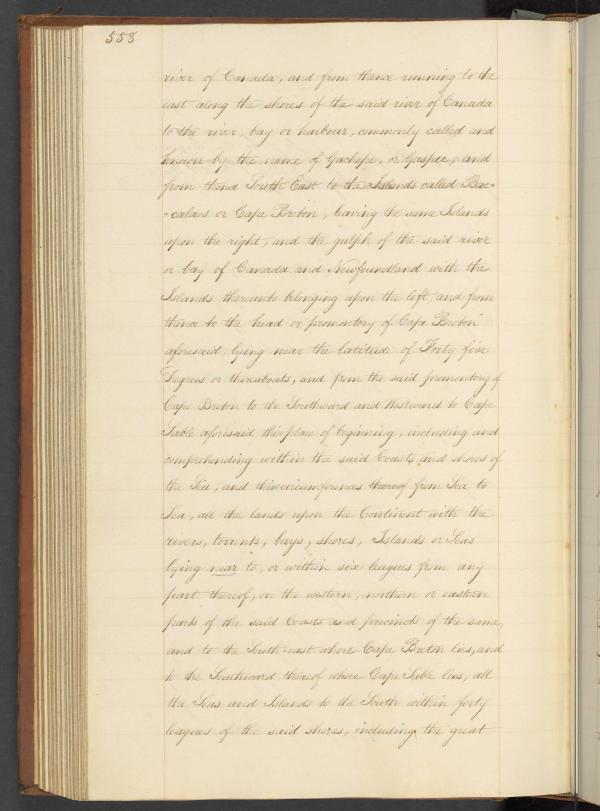 558
river of Canada, and from thence running to the
east along the shores of the said river of Canada
to the river, bay or harbour, commonly called and
known by the name of Gachepe, or Gaspee, and
from thence South East to the Islands called Bac-
-calaos or Cape Breton, leaving the same Islands
upon the right, and the gulph of the said river
or bay of Canada and Newfoundland with the
Islands thereunto belonging upon the left, and from
thence to the head or promontory of Cape Breton
aforesaid, lying near the latitude of Forty five
Degrees or thereabouts, and from the said promontory of
Cape Breton to the Southward and Westward to Cape
Sable aforesaid the place of beginning, including and
comprehending within the said Coasts and shores of
the Sea, and the circumferences thereof from Sea to
Sea, all the lands upon the Continent with the
rivers, torrents, bays, shores, Islands or Seas
lying near to, or within six leagues from any
part thereof, on the western, northern or eastern
parts of the said Coasts and precincts of the same,
and to the South-east where Cape Breton lies, and
to the Southward thereof where Cape Sable lies, all
the Seas and Islands to the South within forty
leagues of the said shores, including the great